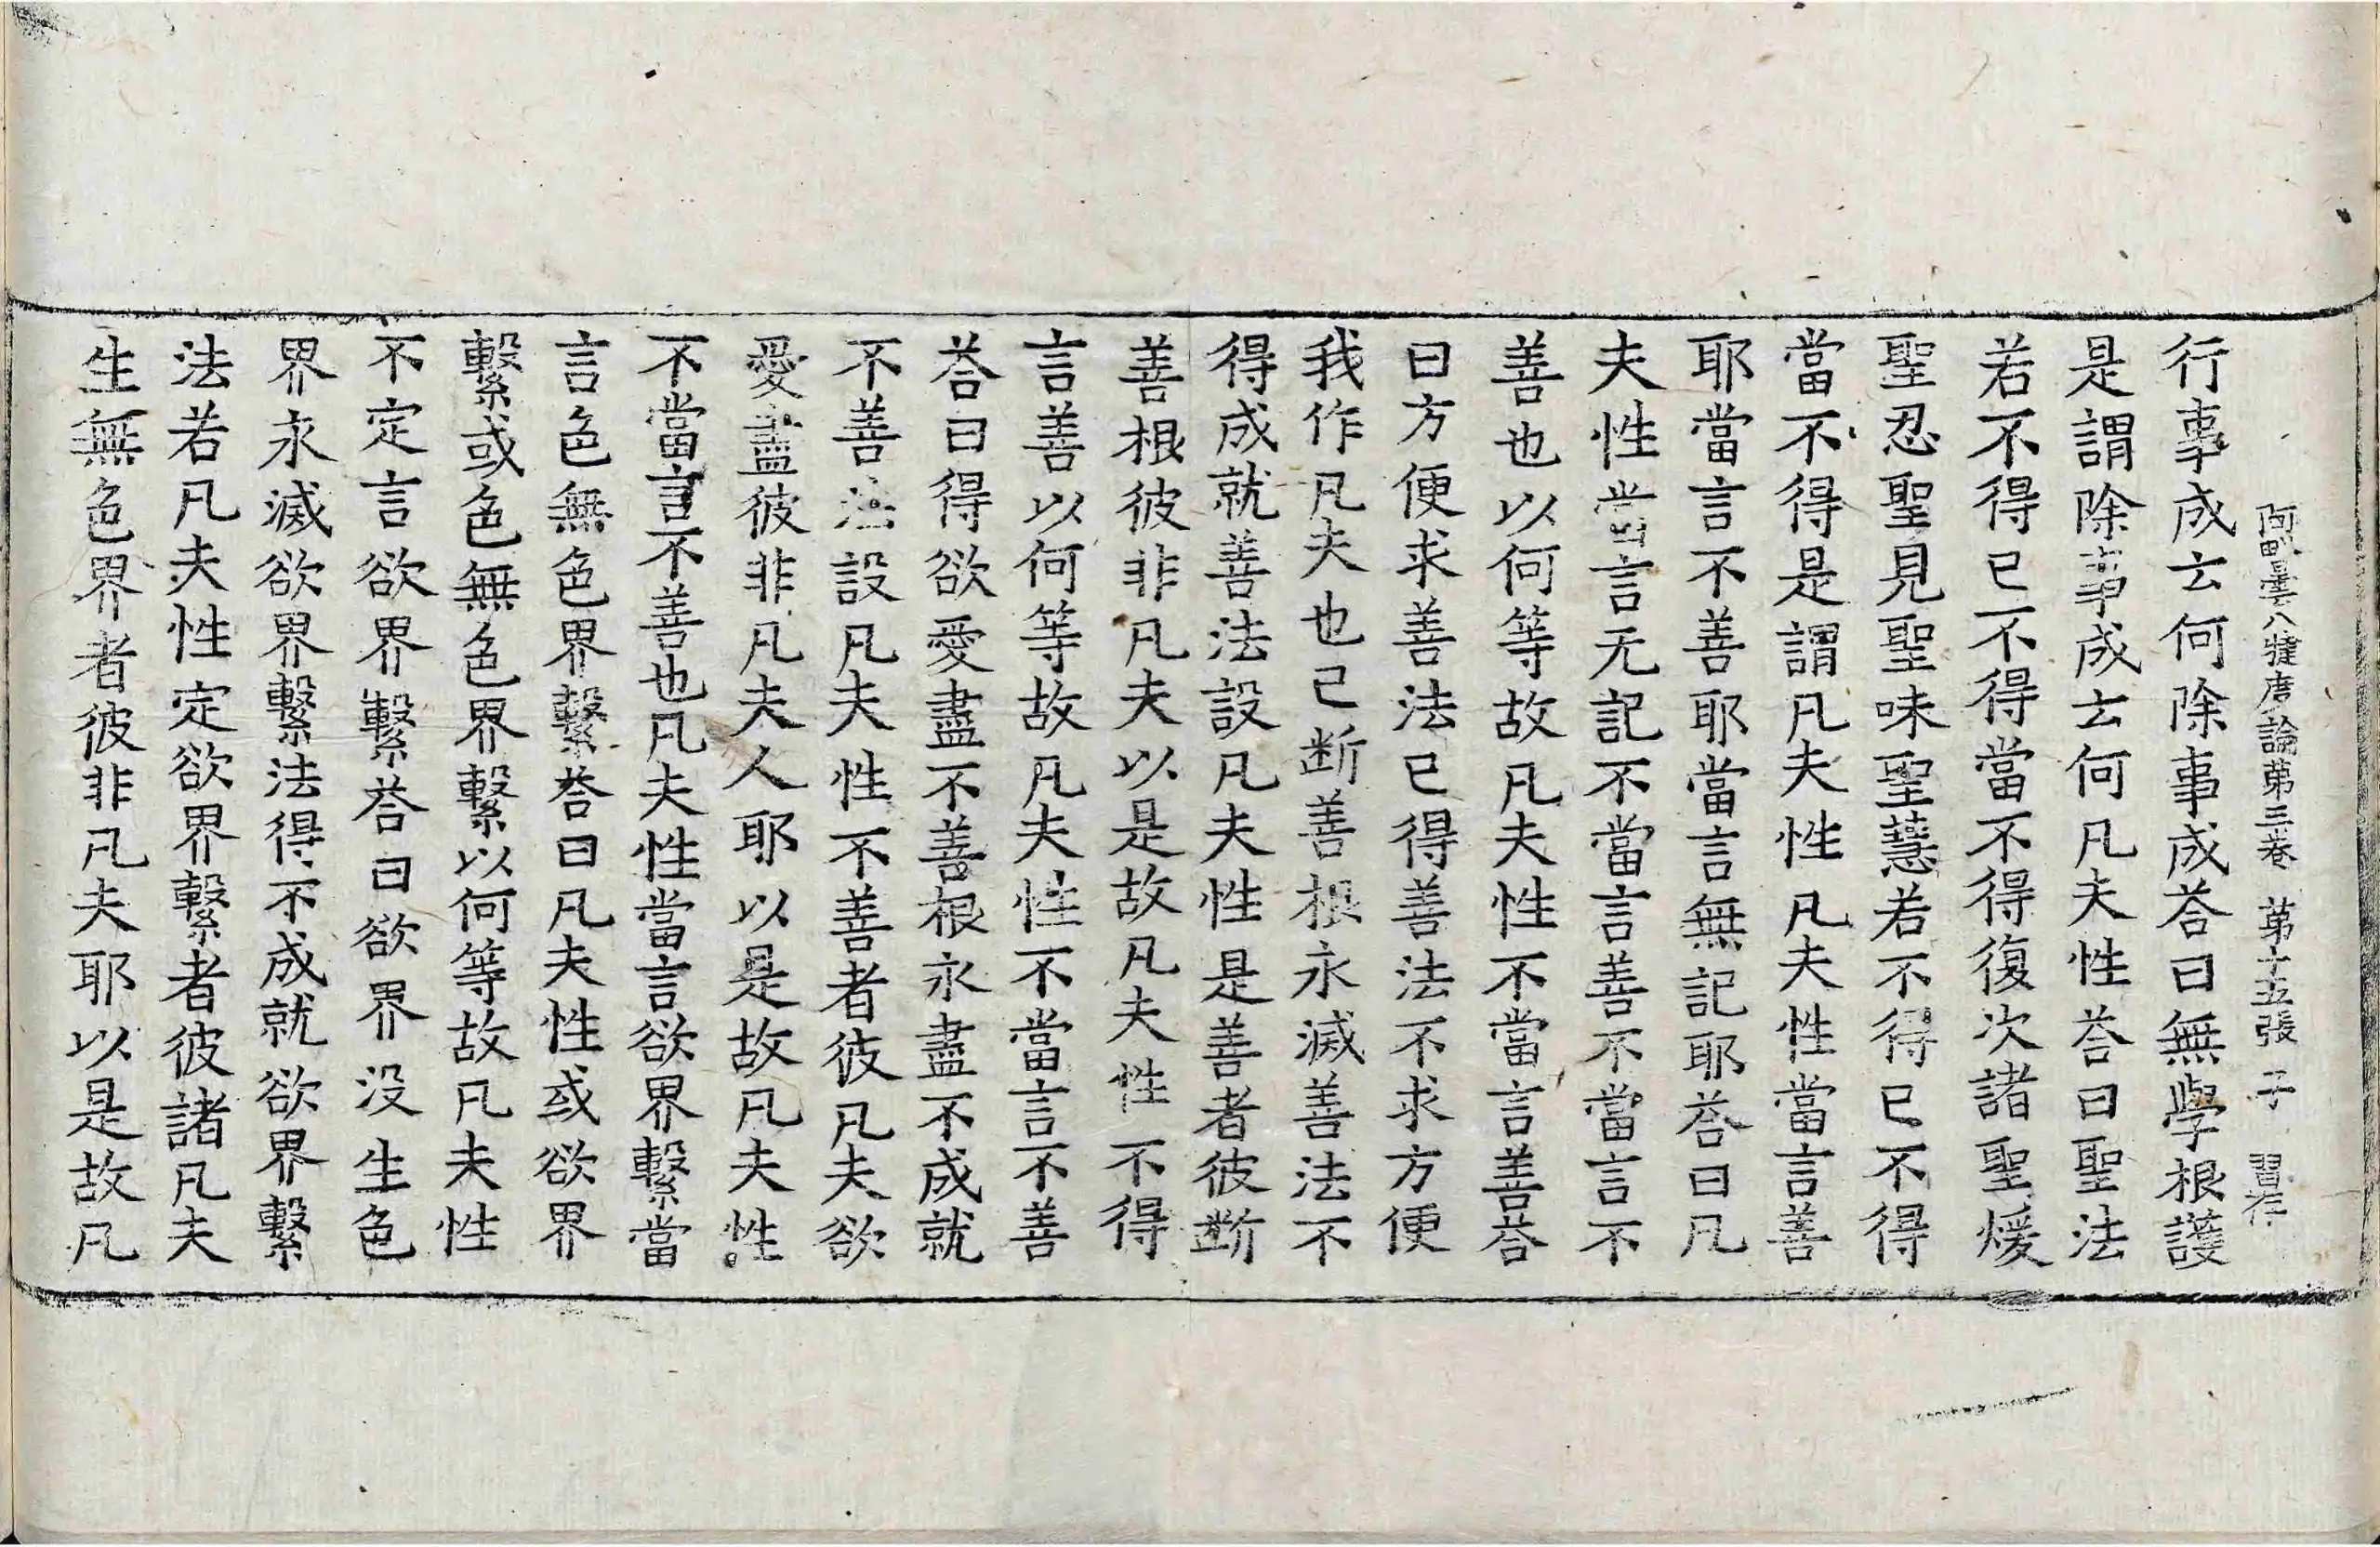 阿毗曇八犍度論第三卷 第十五張 子
行事成云何除事成荅曰無學根護
是謂除事成云何凡夫性荅曰聖法
若不得已不得當不得復次諸聖煖
聖忍聖見聖味聖慧若不得已不得
當不得是謂凡夫性凡夫性當言善
耶當言不善耶當言無記耶荅曰凡
夫性當言无記不當言善不當言不
善也以何等故凡夫性不當言善荅
曰方便求善法已得善法不求方便
我作凡夫也已斷善根永滅善法不
得成就善法設凡夫性是善者彼斷
善根彼非凡夫以是故凡夫性不得
言善以何等故凡夫性不當言不善
荅曰得欲愛盡不善根永盡不成就
不善法設凡夫性不善者彼凡夫欲
愛盡彼非凡夫人耶以是故凡夫性
不當言不善也凡夫性當言欲界繫當
言色無色界繫荅曰凡夫性或欲界
繫或色無色界繫以何等故凡夫性
不定言欲界繫荅曰欲界没生色
界永滅欲界繫法得不成就欲界繫
法若凡夫性定欲界繫者彼諸凡夫
生無色界者彼非凡夫耶以是故凡